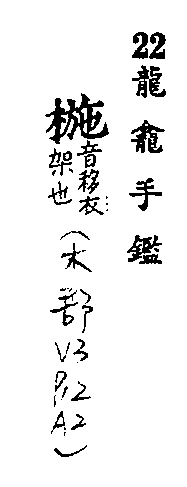 22龍龕手鑑
椸音移衣架也(木部V3P.12A2)